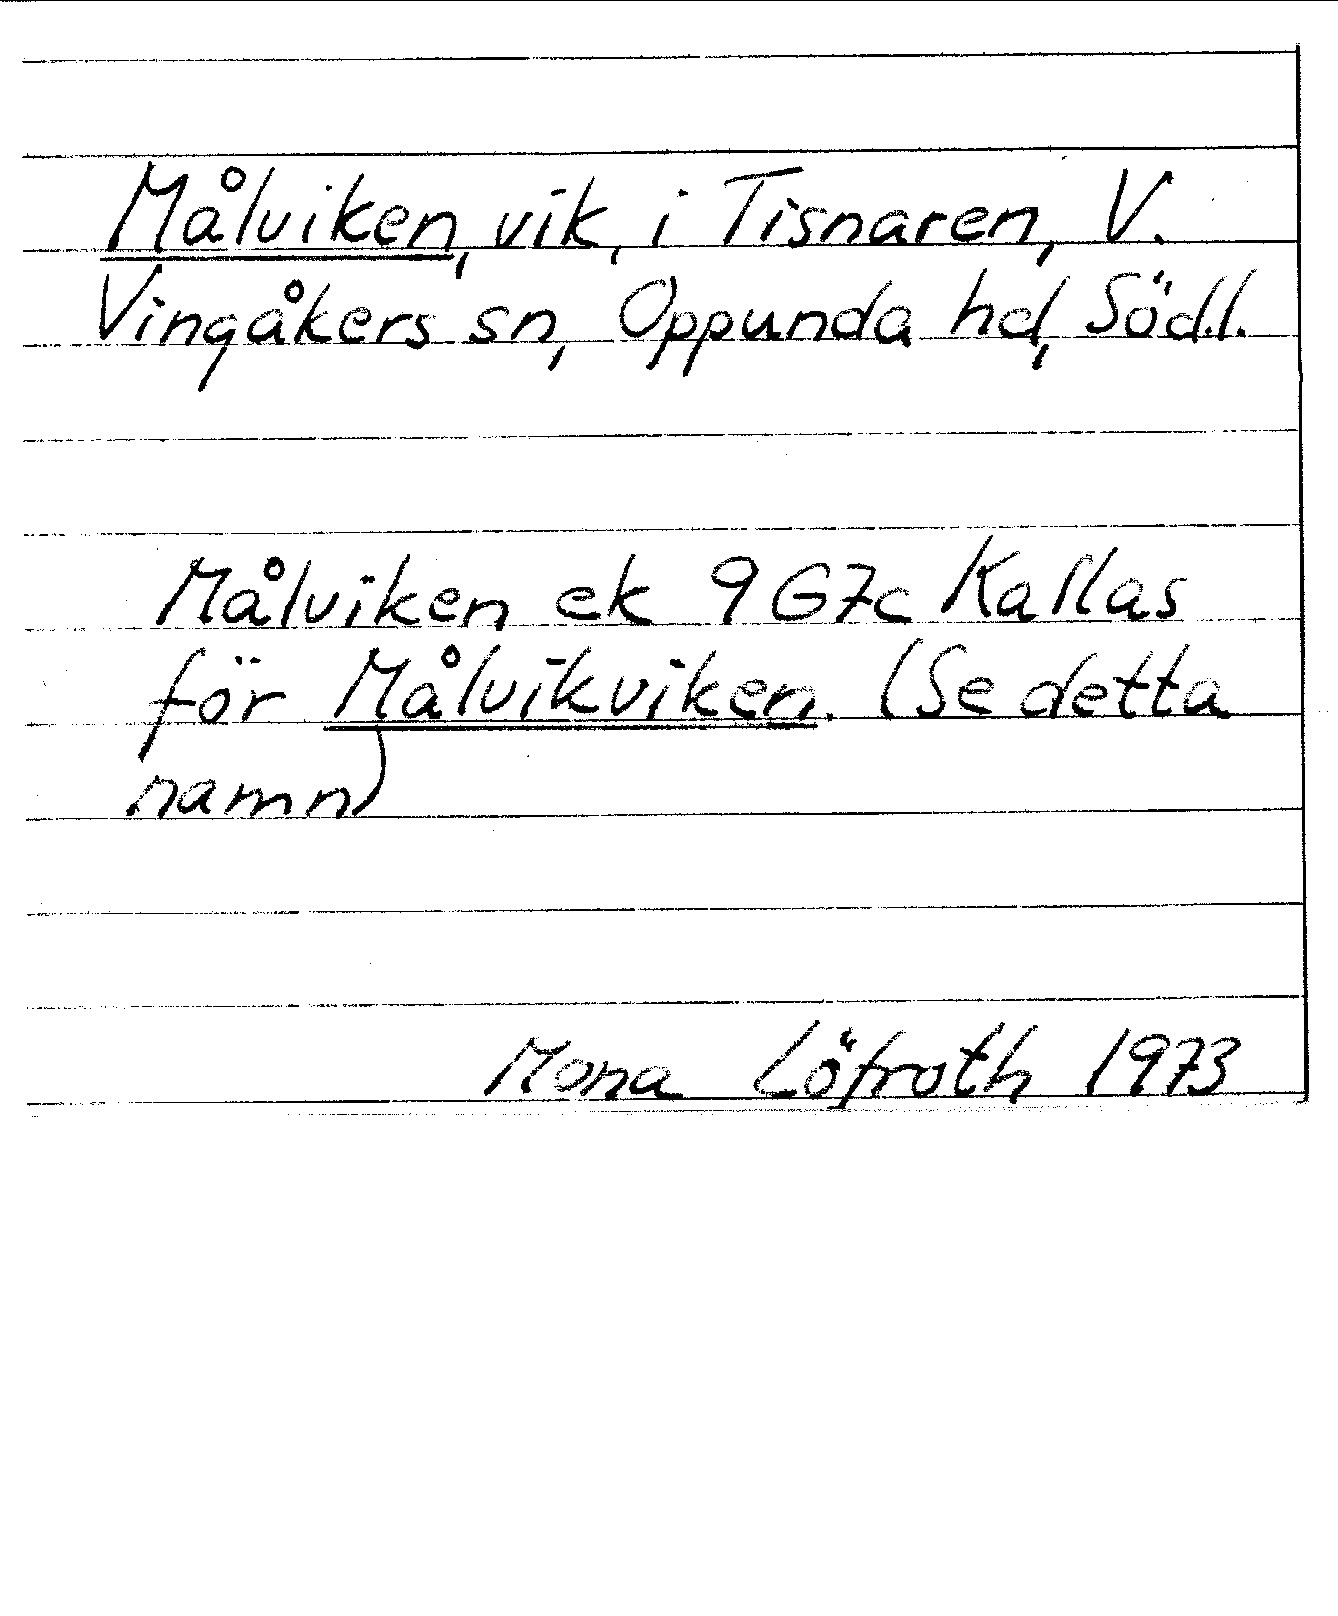 Målviken, vik, i Tisnaren, V.
Vingåkers sn, Oppunda hd, Södl.
Målviken ek 9G7c Kallas
för Målvikviken. (Se detta
namn)
Mona Löfroth 1973